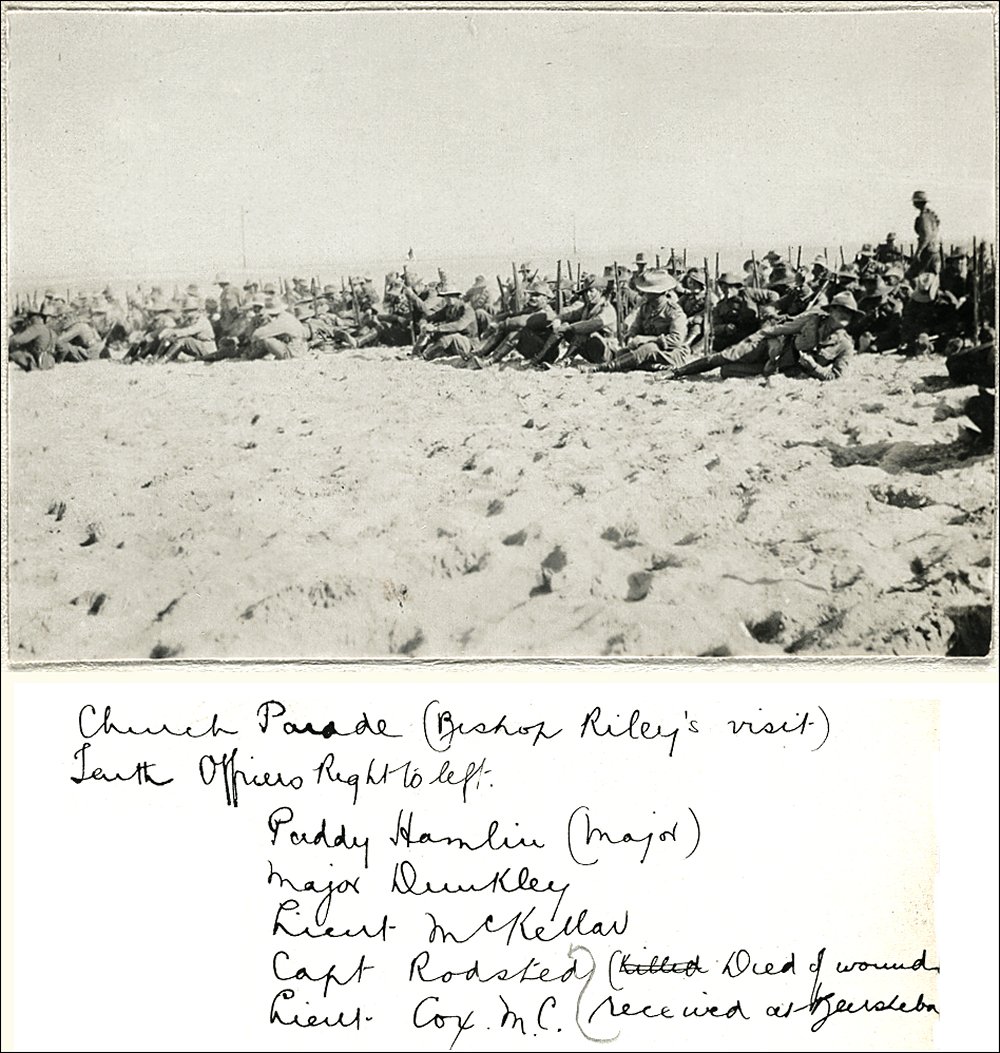 Church Parade (Bishop Riley's visit)
Tenth Officers Right to left.
Paddy Hamlin (Major)
Major Dunkley
Lieut McKellar
Capt Rodsted (Killed Died of wounds
Lieut. Cox. M.C. (received at Beersheba